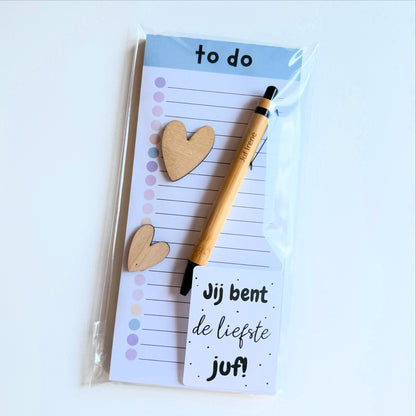 to do
Juf Irene
Jij bent
de liefste
juf!